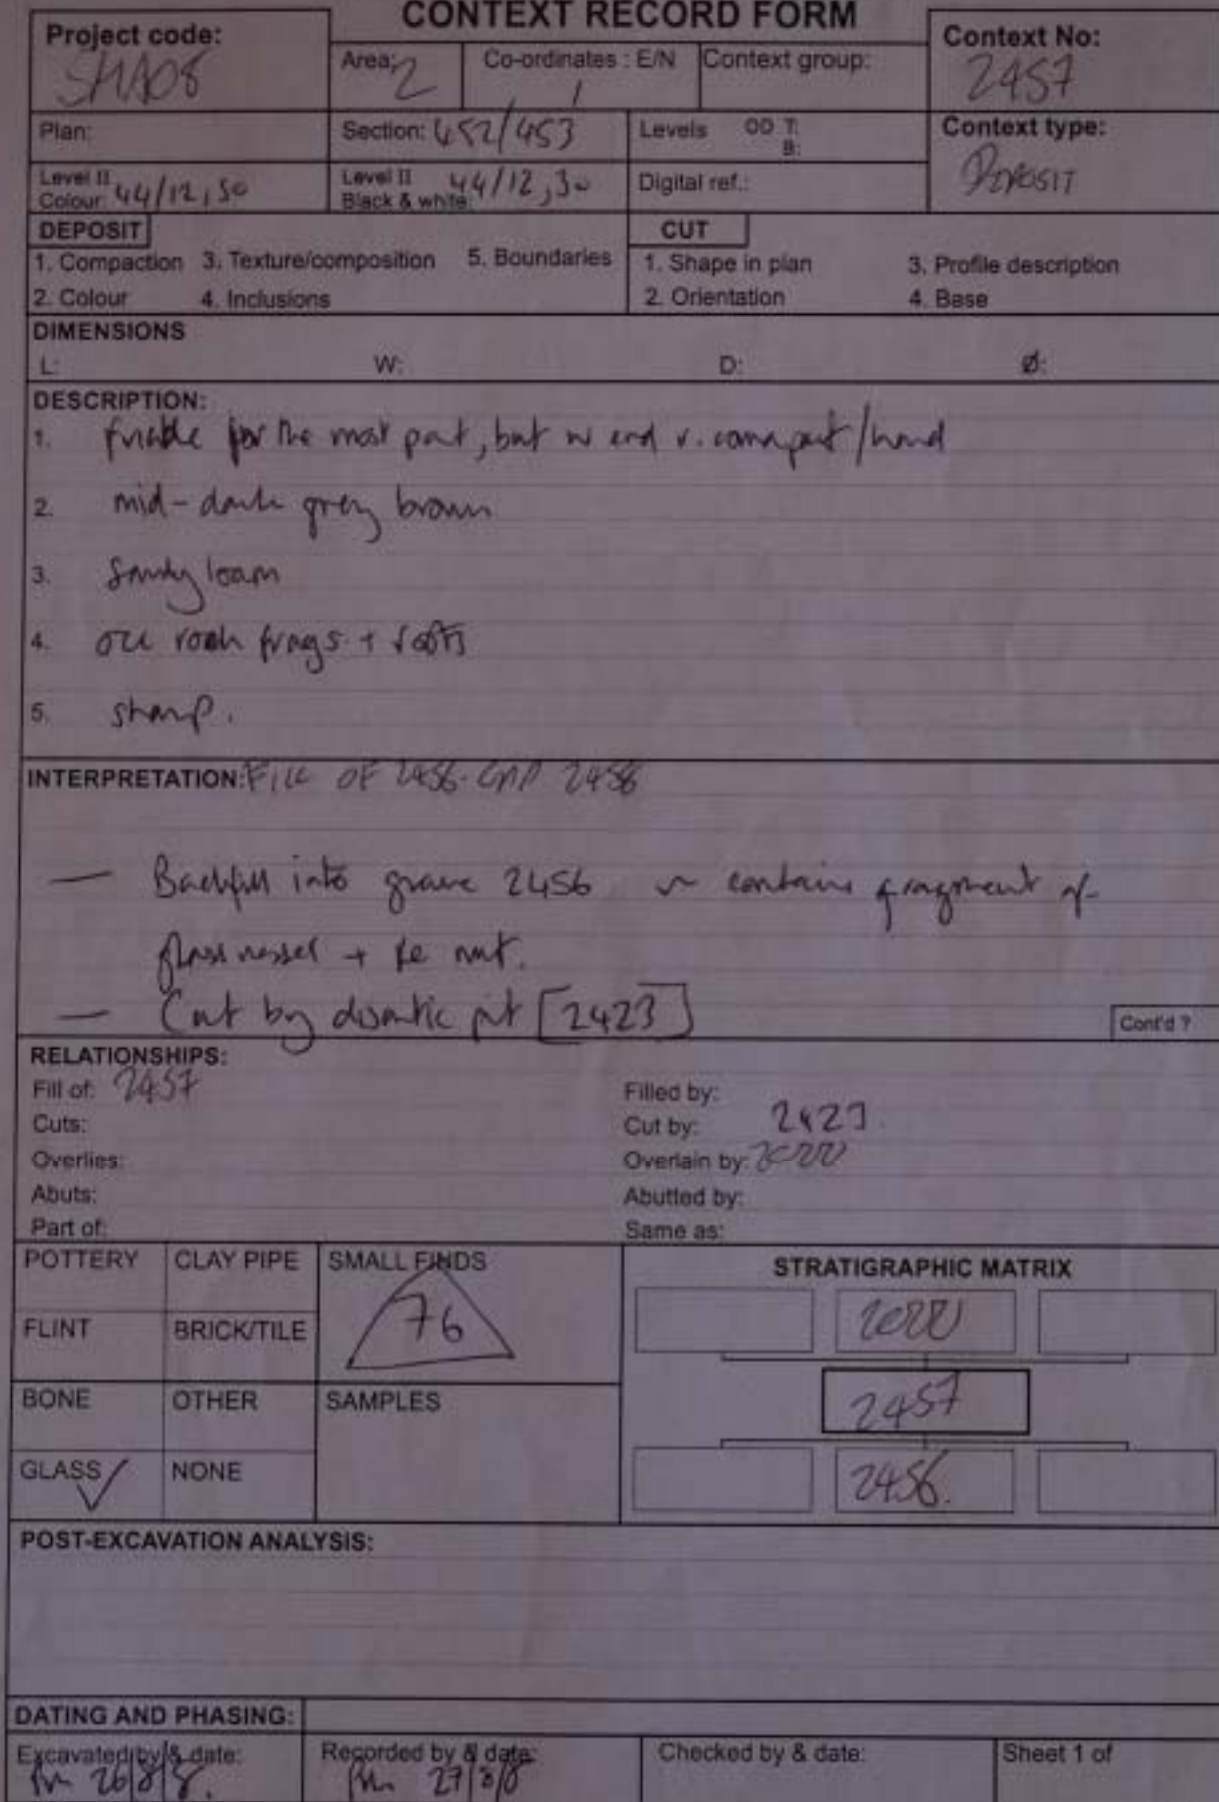 CONTEXT RECORD FORM
Project code:
SHA08
Area: 2
Co-ordinates : E/N
/
Context group:
Context No:
2457
Plan:
Section: 452/453
Levels OD T:
B:
Context type:
DEPOSIT
Level II
Colour: 44/12, 30
Level II
Black & white: 44/12, 30
Digital ref.:
DEPOSIT
1. Compaction 3. Texture/composition 5. Boundaries
2. Colour 4. Inclusions
CUT
1. Shape in plan 3. Profile description
2. Orientation 4. Base
DIMENSIONS
L: W: D: Ø:
DESCRIPTION:
1. friable for the most part, but w end v. compact/hard
2. mid-dark grey brown
3. Sandy loam
4. occ rooh frags + roots
5. sharp.
INTERPRETATION: FILL OF 2456. GRP 2458
— Backfill into grave 2456 contains fragment of
glass vessel + Fe
— Cut by domestic pit [2423]
Cont'd ?
RELATIONSHIPS:
Fill of: 2457
Filled by:
Cuts:
Cut by: 2423
Overlies:
Overlain by:
Abuts:
Abutted by:
Part of:
Same as:
POTTERY CLAY PIPE SMALL FINDS
76
FLINT BRICK/TILE
BONE OTHER SAMPLES
GLASS ✓ NONE
STRATIGRAPHIC MATRIX
2457
2456.
POST-EXCAVATION ANALYSIS:
DATING AND PHASING:
Excavated by & date:
26/8/8.
Recorded by & date:
27/8/8
Checked by & date:
Sheet 1 of